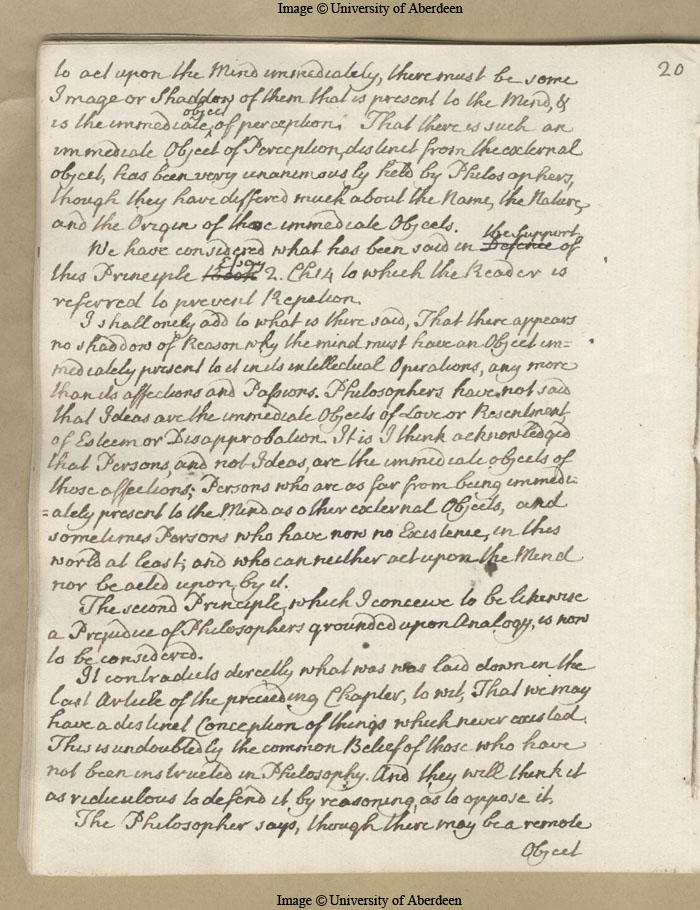 Image © University of Aberdeen
20
to act upon the Mind immediately, there must be some
Image or Shaddow of them that is present to the Mind, &
object
is the immediate of perception. That there is such an
immediate Object of Perception, distinct from the external
object, has been very unanimously held by Philosophers,
though they have differed much about the Name, the Nature,
and the Origin of those immediate Objects.
the Support
We have considered what has been said in Defence of
Essay
this Principle Book 2. Ch 14 to which the Reader is
referred to prevent Repetion.
I shall onely add to what is there said, That there appears
no shaddow of Reason why the mind must have an Object im=
mediately present to it in its intellectual Operations, any more
than its affections and Passions. Philosophers have not said
that Ideas are the immediate Objects of Love or Resentment,
of Esteem or Disapprobation. It is I think acknowledged
that Persons, and not Ideas, are the immediate objects of
those affections; Persons who are as far from being immedi=
=ately present to the Mind as other external Objects, and
sometimes Persons who have now no Existence, in this
world at least; and who can neither act upon the Mind
nor be acted upon by it.
The second Principle, which I conceive to be likewise
a Prejudice of Philosophers grounded upon Analogy, is now
to be considered.
It contradicts directly what was was laid down in the
last Article of the preceeding Chapter, to wit, That we may
have a distinct Conception of things which never existed.
This is undoubtedly the common Belief of those who have
not been instructed in Philosophy. And they will think it
as ridiculous to defend it by reasoning, as to oppose it.
The Philosopher says, though there may be a remote
Object
Image © University of Aberdeen